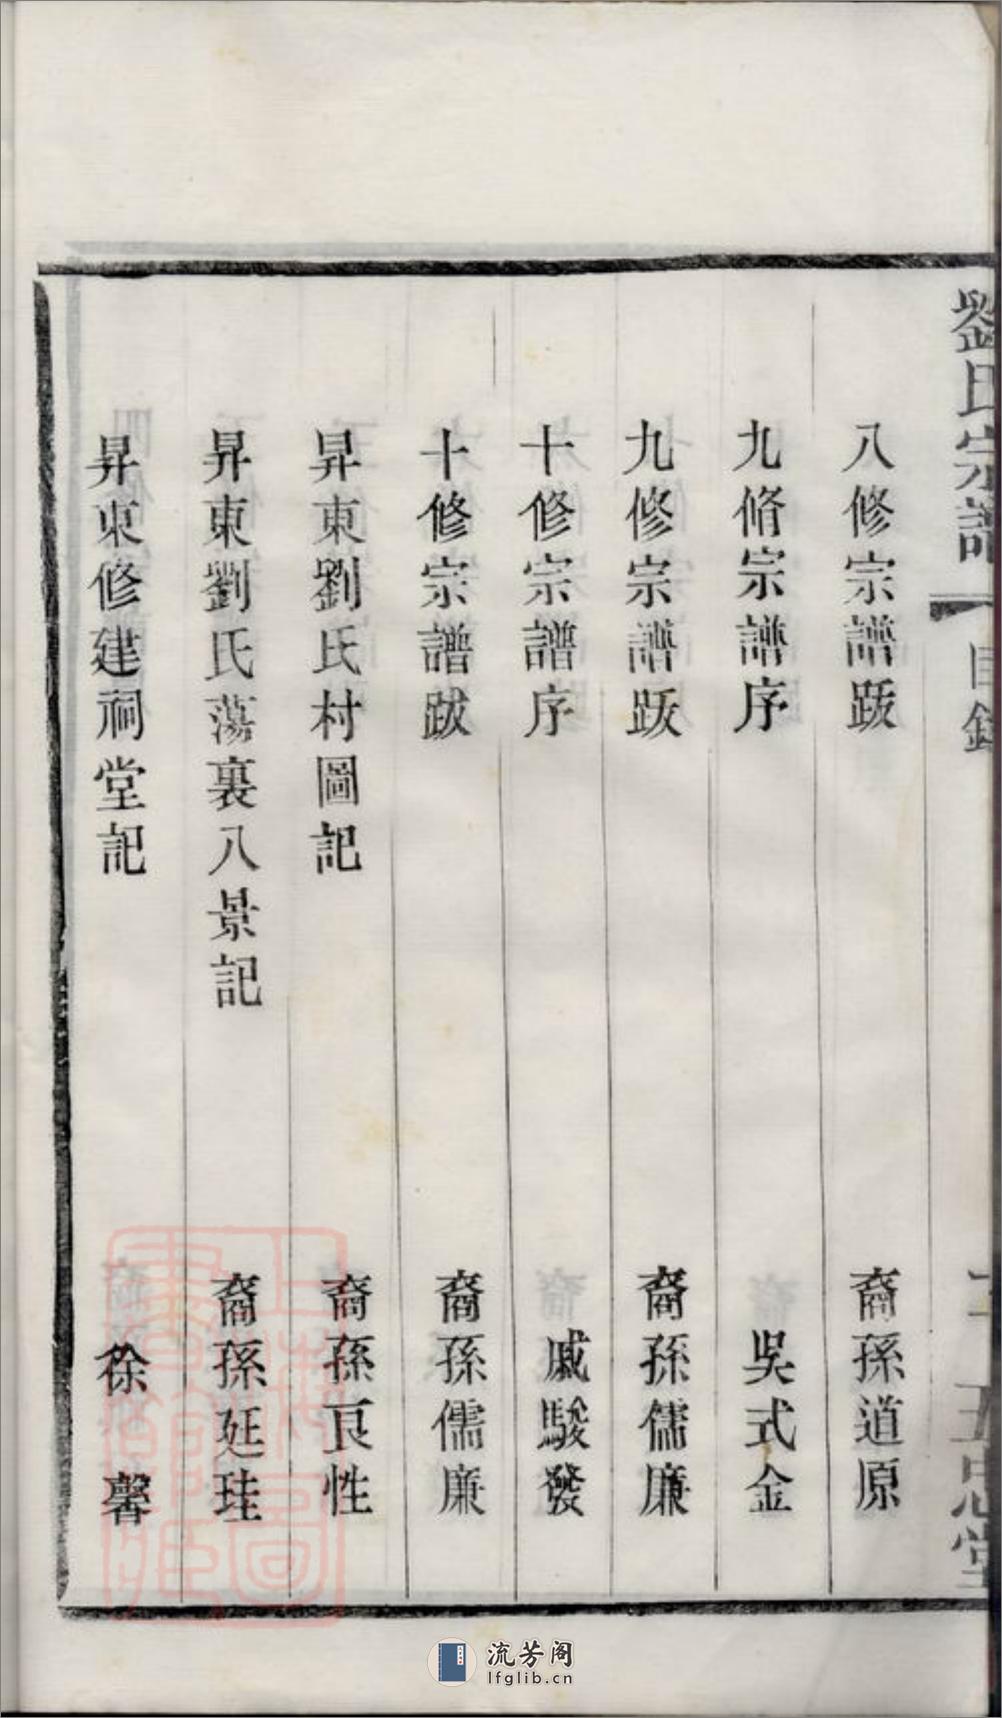 劉氏宗譜 目錄 二 五思堂
八修宗譜跋 裔孫道原
九脩宗譜序 吳式金
九修宗譜跋 裔孫儒廉
十修宗譜序 戚駿發
十修宗譜跋 裔孫儒廉
昇東劉氏村圖記 裔孫良性
昇東劉氏蕩裏八景記 裔孫廷珪
昇東修建祠堂記 徐馨
流芳阁
lfglib.cn